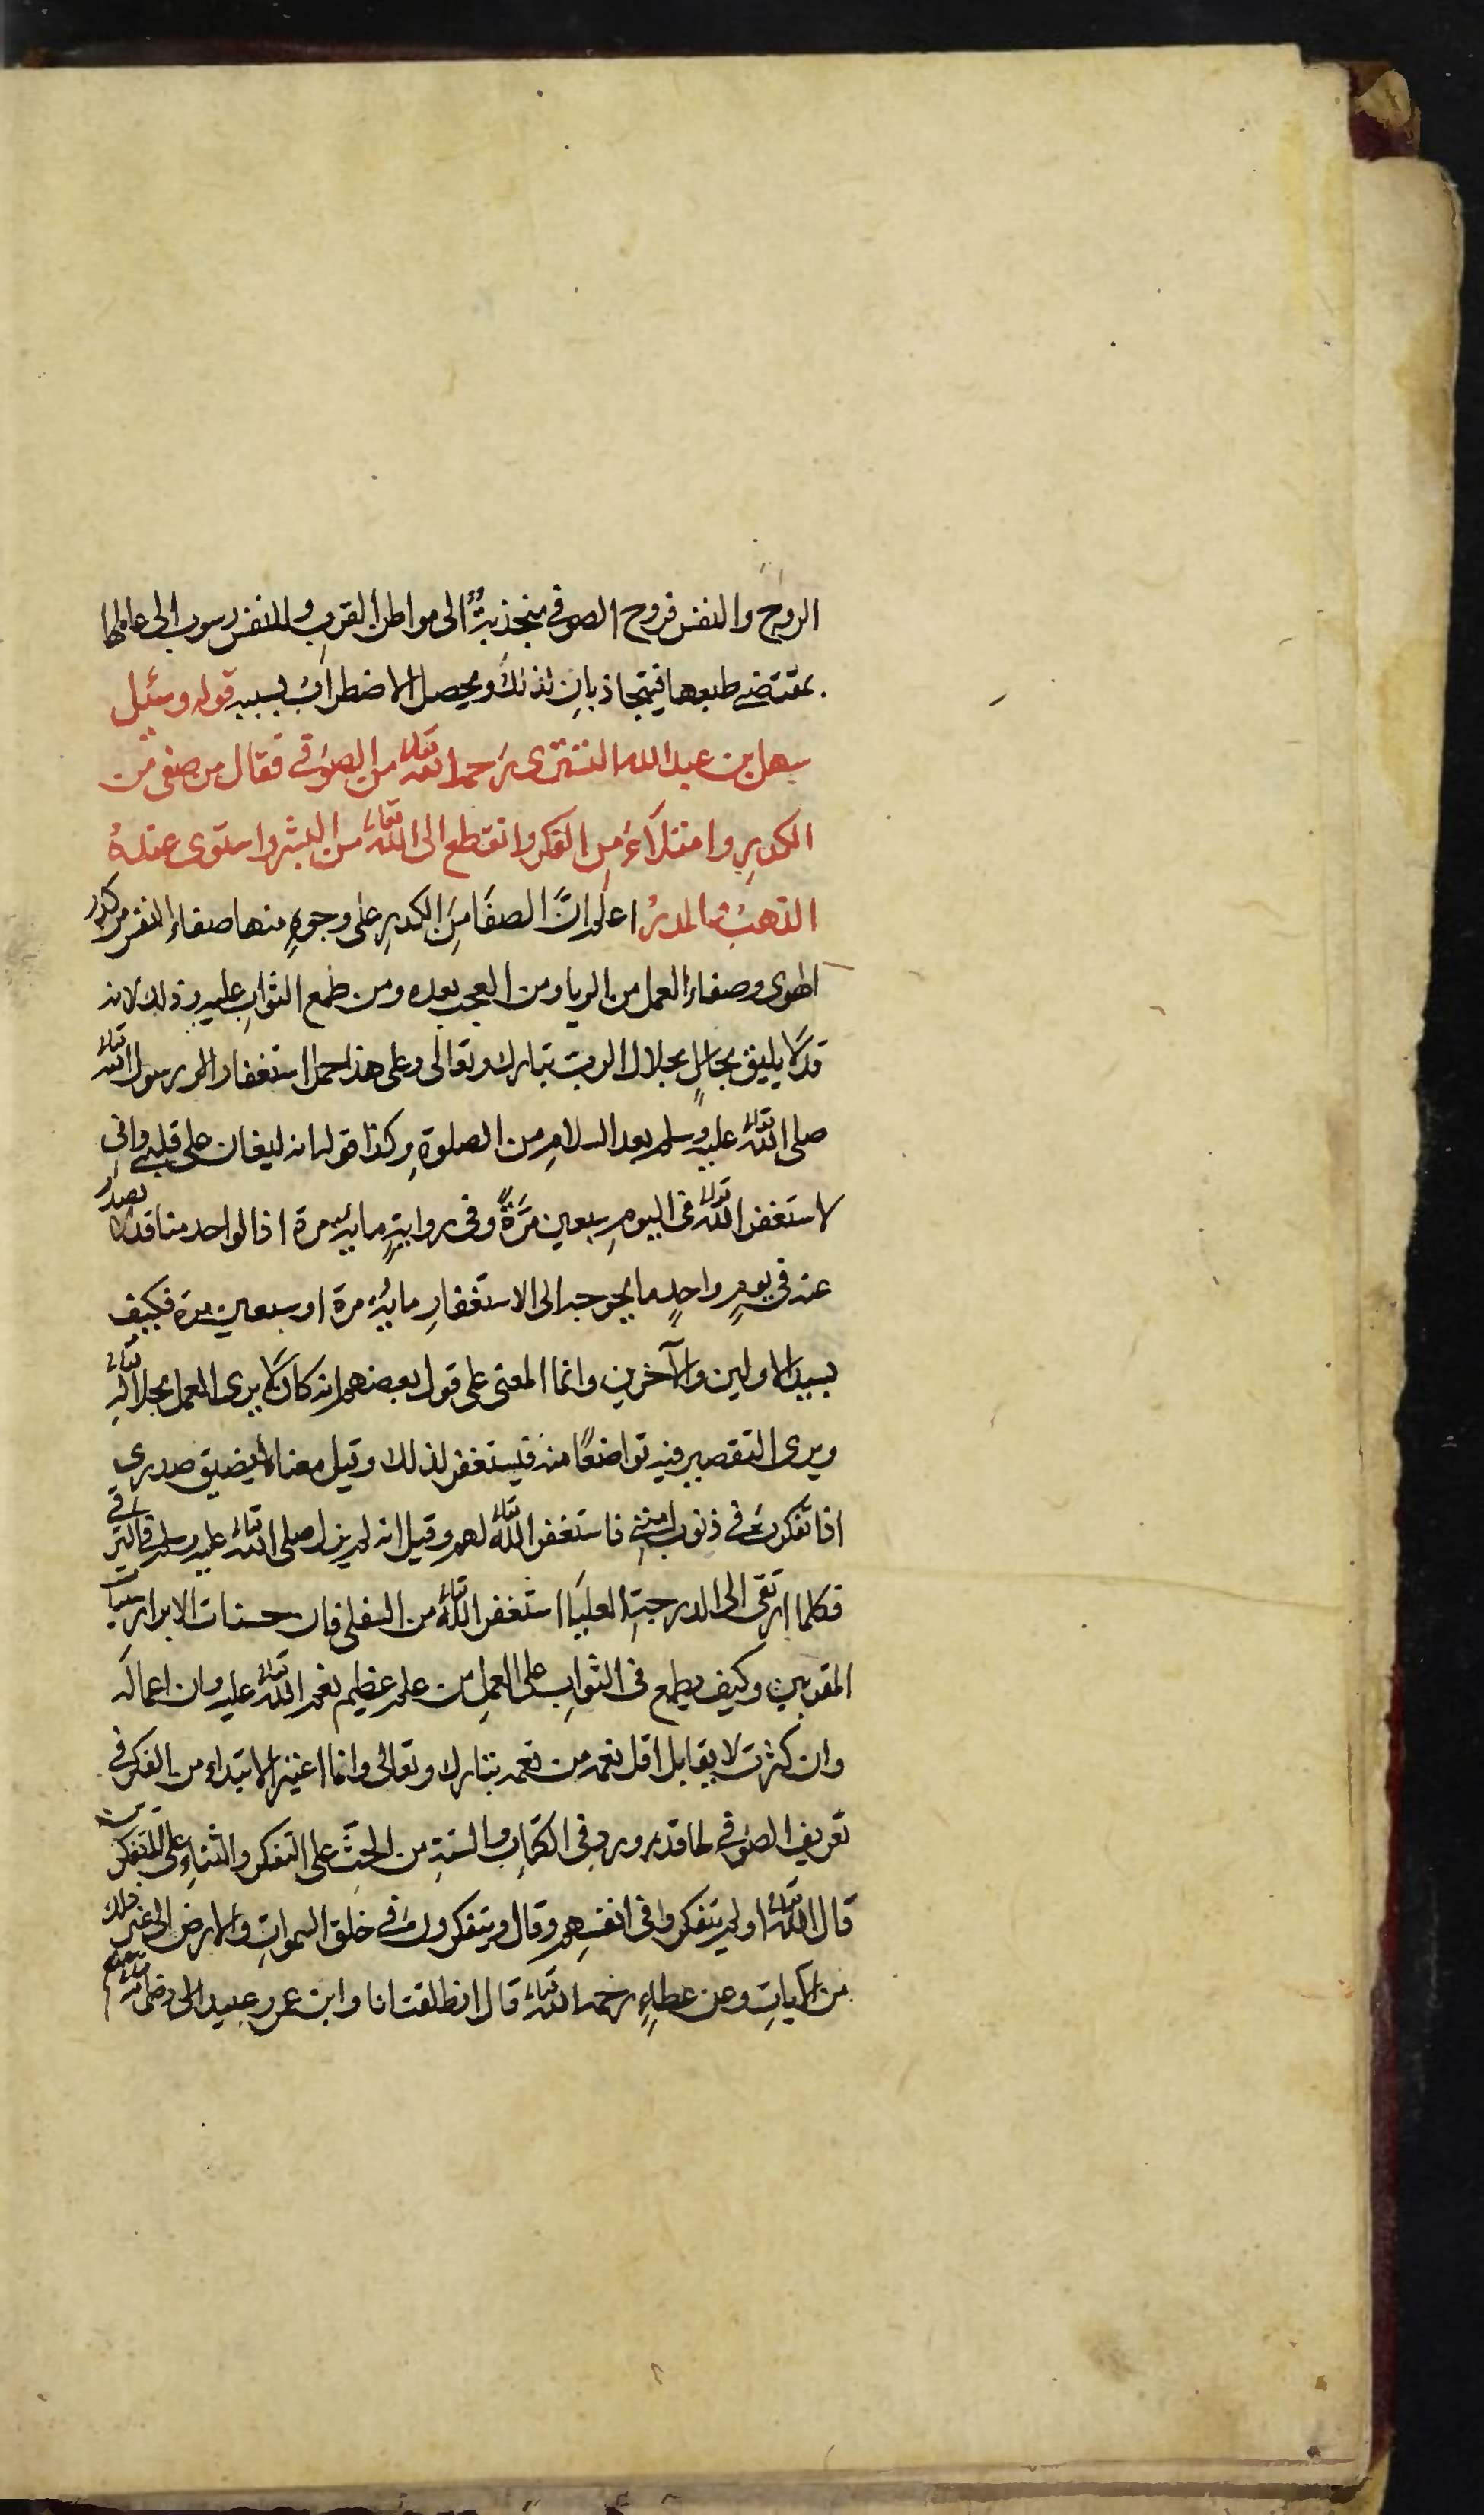 الروح والنفس فروح الصوفي منجذبةٌ الى مواطن القربِ وللنفس رسوب الى عالمها
بمقتضى طبعها فيتجاذبانِ لذلك ويحصل الاضطرابُ بسببه قوله وسئل
سهل بن عبد الله التستري رحمه الله تعالى من الصوفي فقال من صفى من
الكدرِ وامتلآءَ مِن الفكر وانقطع الى الله تعالى من البشر واستوى عندهُ
الذهبُ والمدرُ اعلم انَّ الصفَا مِنَ الكدرِ على وجوهٍ منها صفاء النفس من كدر
الهوى وصفاء العمل من الريا ومن العجب بعده ومن طمع الثوابِ عليه وذلك لانه
قد لا يليق بحالٍ بجلال الرب تبارك وتعالى وعلى هذا حمل استغفار الرسول الله تعالى
صلى الله تعالى عليه وسلم بعد السلامِ من الصلوةِ وكذا قوله انه ليغان على قلبي واني
لاستغفر الله تعالى فى اليومِ سبعين مرَةً وفى روايةٍ مايةَ مرة اذ الواحد منا قد لا يصدر
عنه في يومٍ واحدٍ ما يحوجه الى الاستغفارِ مايةَ مرة او سبعين مرة فكيف
بسيد الاولين والآخرين وانما المعنى على قول بعضهم انه كان لا يرى العمل بجلال الله تعالى
ويرى التقصير فيه تواضعًا منه فيستغفر لذلك وقيل معناه يضيق صدري
اذا تفكرت في ذنوب امتي فاستغفر الله تعالى لهم وقيل انه لم يزل صلى الله تعالى عليه وسلم في الترقي
فكلما ارتقى الى الدرجةِ العليَا استغفر الله تعالى من السفلى فان حسنات الابرار سيئات
المقربين وكيف يطمع فى الثوابِ على العملِ من علم عظيم نعم الله تعالى عليه وان اعماله
وان كثرت لا يقابل اقل نعمة من نعمه تبارك وتعالى وانما اعتبر الابتداء من الفكر في
تعريف الصوفي لما قد ورد فى الكتابِ والسنةِ من الحثِّ على التفكر والثناءِ على المتفكرين
قال الله تعالى اولم يتفكروا فى انفسهم وقال ويتفكرون في خلق السموات والارض الى غير ذلك
من الآياتِ وعن عطاءٍ رحمه الله تعالى قال انطلقت انا وابن عمر وعبيد الى رضى الله تعالى عنهم